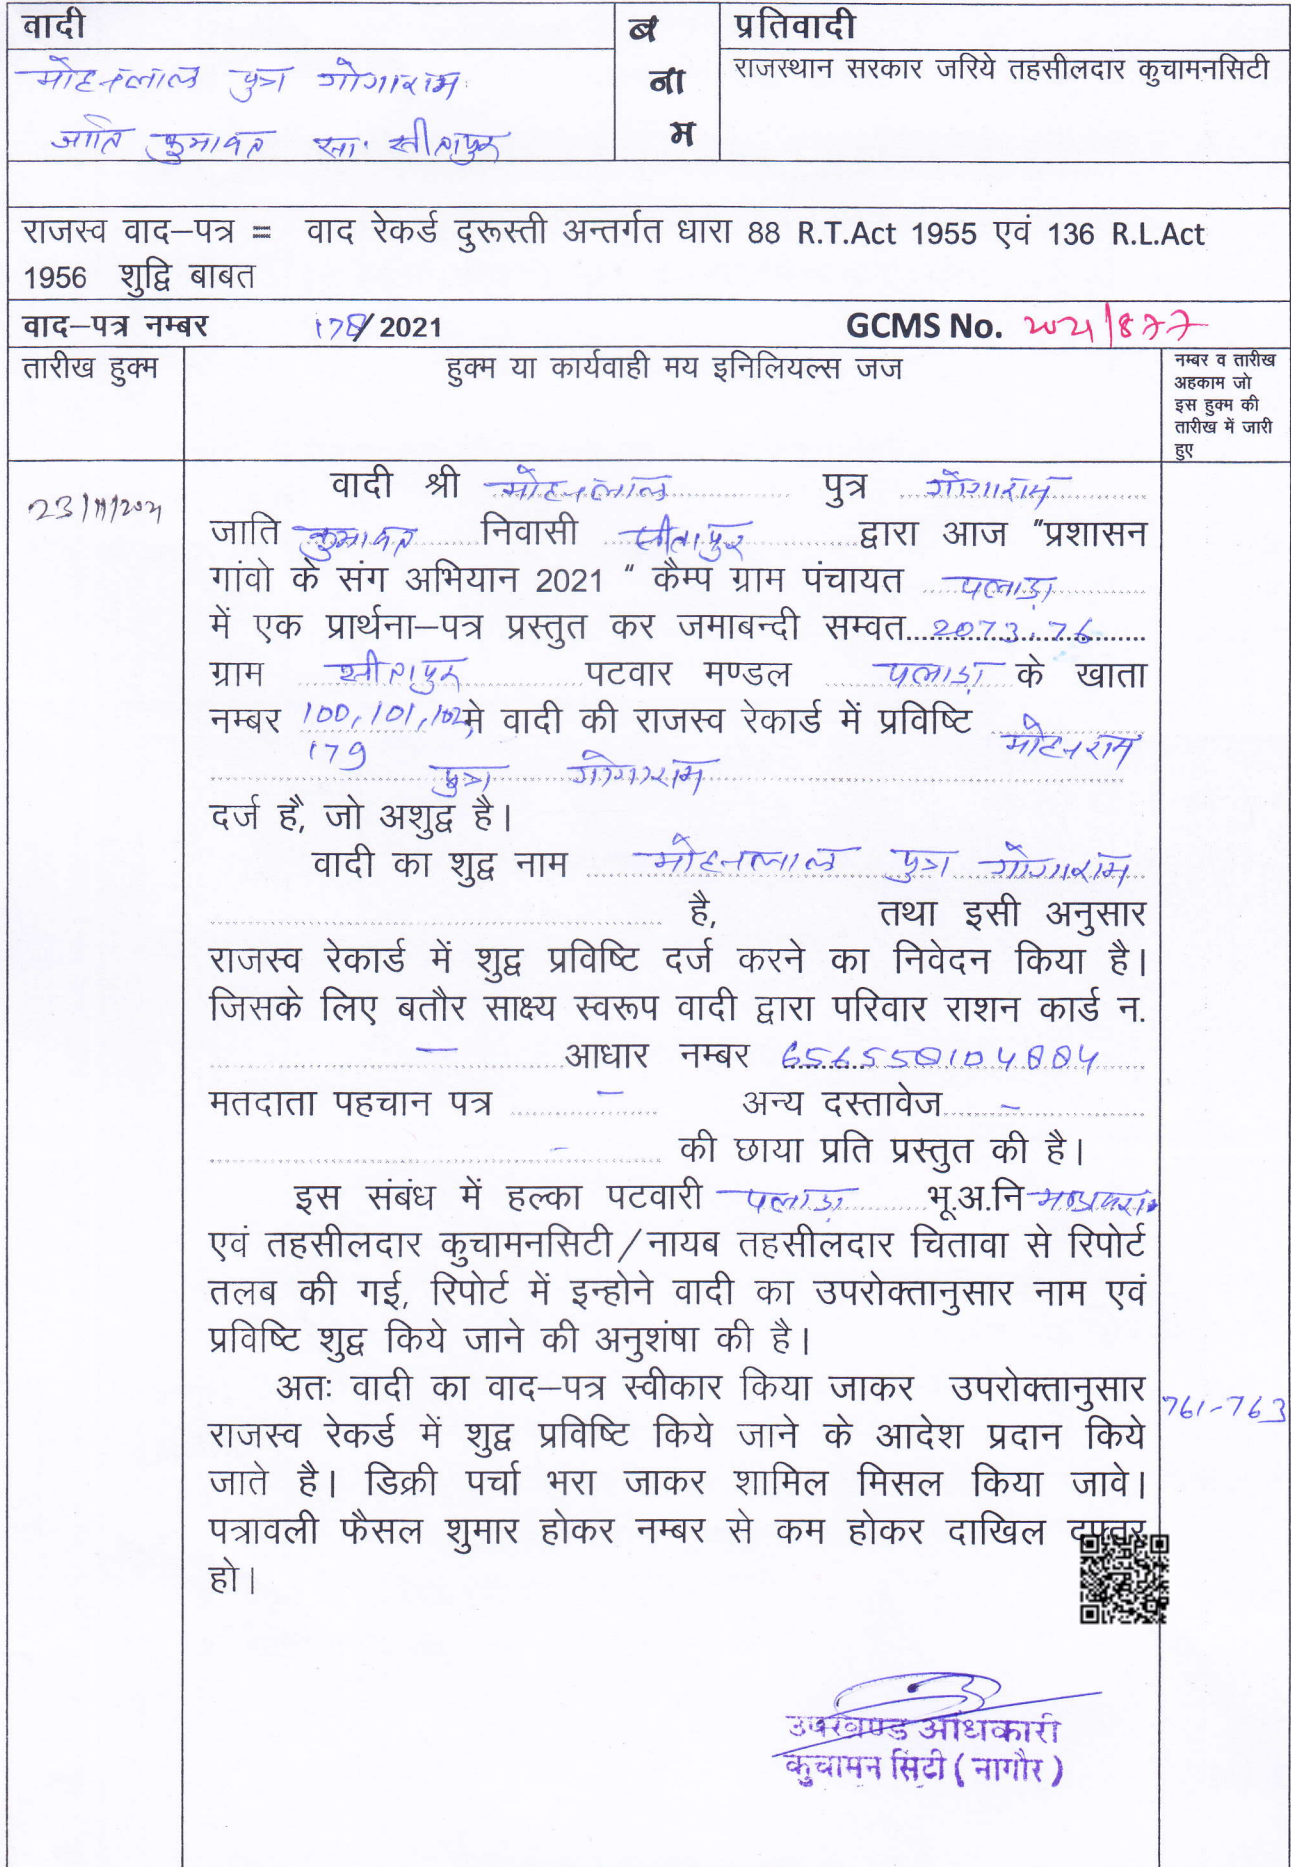 वादी
ब ना म
प्रतिवादी
मोहनलाल पुत्र गोगाराम
जाति कुमावत सा. सीतापुर
राजस्थान सरकार जरिये तहसीलदार कुचामनसिटी
राजस्व वाद–पत्र = वाद रेकर्ड दुरूस्ती अन्तर्गत धारा 88 R.T.Act 1955 एवं 136 R.L.Act
1956 शुद्वि बाबत
वाद–पत्र नम्बर 178/ 2021 GCMS No. 2021/877
तारीख हुक्म
हुक्म या कार्यवाही मय इनिलियल्स जज
नम्बर व तारीख
अहकाम जो
इस हुक्म की
तारीख में जारी
हुए
23/11/2021
वादी श्री मोहनलाल पुत्र गोगाराम
जाति कुमावत निवासी सीतापुर द्वारा आज "प्रशासन
गांवो के संग अभियान 2021 " कैम्प ग्राम पंचायत पलाड़ा
में एक प्रार्थना–पत्र प्रस्तुत कर जमाबन्दी सम्वत 2073.76
ग्राम सीतापुर पटवार मण्डल पलाड़ा के खाता
नम्बर 100,101,102, मे वादी की राजस्व रेकार्ड में प्रविष्टि मोहनराम
179 पुत्र गोगाराम
दर्ज है, जो अशुद्व है।
वादी का शुद्व नाम मोहनलाल पुत्र गोगाराम
है, तथा इसी अनुसार
राजस्व रेकार्ड में शुद्व प्रविष्टि दर्ज करने का निवेदन किया है।
जिसके लिए बतौर साक्ष्य स्वरूप वादी द्वारा परिवार राशन कार्ड न.
– आधार नम्बर 656558104884
मतदाता पहचान पत्र – अन्य दस्तावेज –
– की छाया प्रति प्रस्तुत की है।
इस संबंध में हल्का पटवारी पलाड़ा भू.अ.नि
एवं तहसीलदार कुचामनसिटी/नायब तहसीलदार चितावा से रिपोर्ट
तलब की गई, रिपोर्ट में इन्होने वादी का उपरोक्तानुसार नाम एवं
प्रविष्टि शुद्व किये जाने की अनुशंषा की है।
अतः वादी का वाद–पत्र स्वीकार किया जाकर उपरोक्तानुसार
761-763
राजस्व रेकर्ड में शुद्व प्रविष्टि किये जाने के आदेश प्रदान किये
जाते है। डिक्री पर्चा भरा जाकर शामिल मिसल किया जावे।
पत्रावली फैसल शुमार होकर नम्बर से कम होकर दाखिल दफ्तर
हो।
उपखण्ड अधिकारी
कुचामन सिटी ( नागौर )